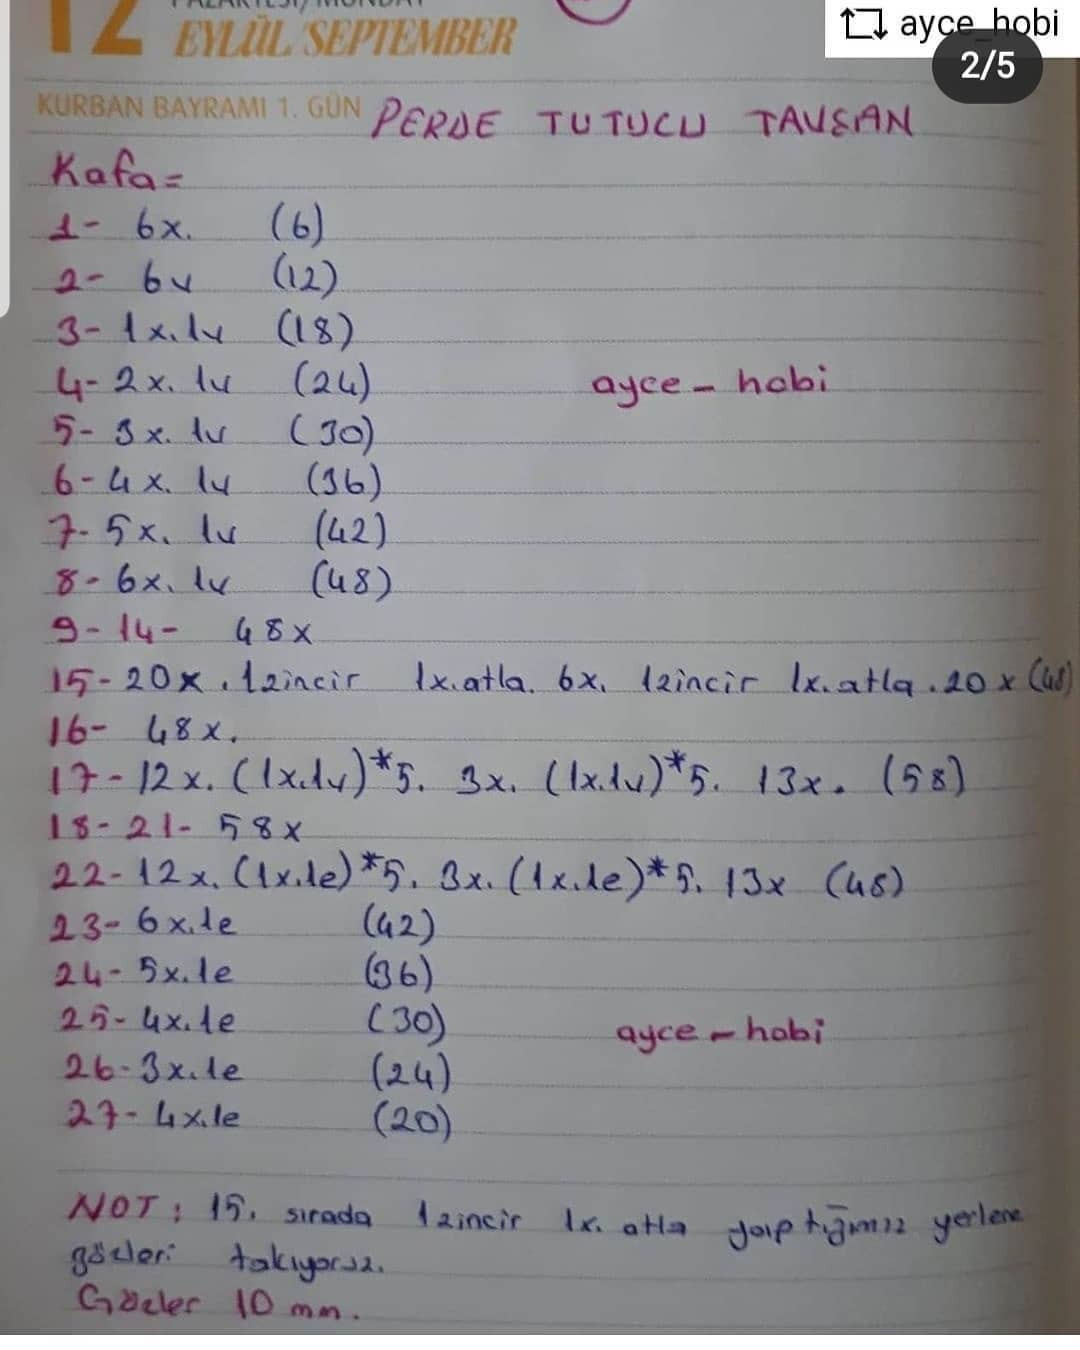 ayce_hobi
2/5
12 EYLÜL SEPTEMBER
KURBAN BAYRAMI 1. GÜN
PERDE TUTUCU TAVŞAN
Kafa=
1- 6x. (6)
2- 6v (12)
3- 1x.1v (18)
4- 2x. 1v (24)
ayce-hobi
5- 3x. 1v (30)
6- 4x. 1v (36)
7- 5x. 1v (42)
8- 6x. 1v (48)
9-14- 48x
15- 20x. 1zincir 1x.atla. 6x. 1zincir 1x.atla. 20x (48)
16- 48x.
17- 12x. (1x.1v)*5. 3x. (1x.1v)*5. 13x. (58)
18-21- 58x
22- 12x. (1x.1e)*5. 3x. (1x.1e)*5. 13x (48)
23- 6x.1e (42)
24- 5x.1e (36)
25- 4x.1e (30)
ayce-hobi
26- 3x.1e (24)
27- 4x.1e (20)
NOT: 15. sırada 1zincir 1x. atla yaptığımız yerlere
gözleri takıyoruz.
Gözler 10 mm.